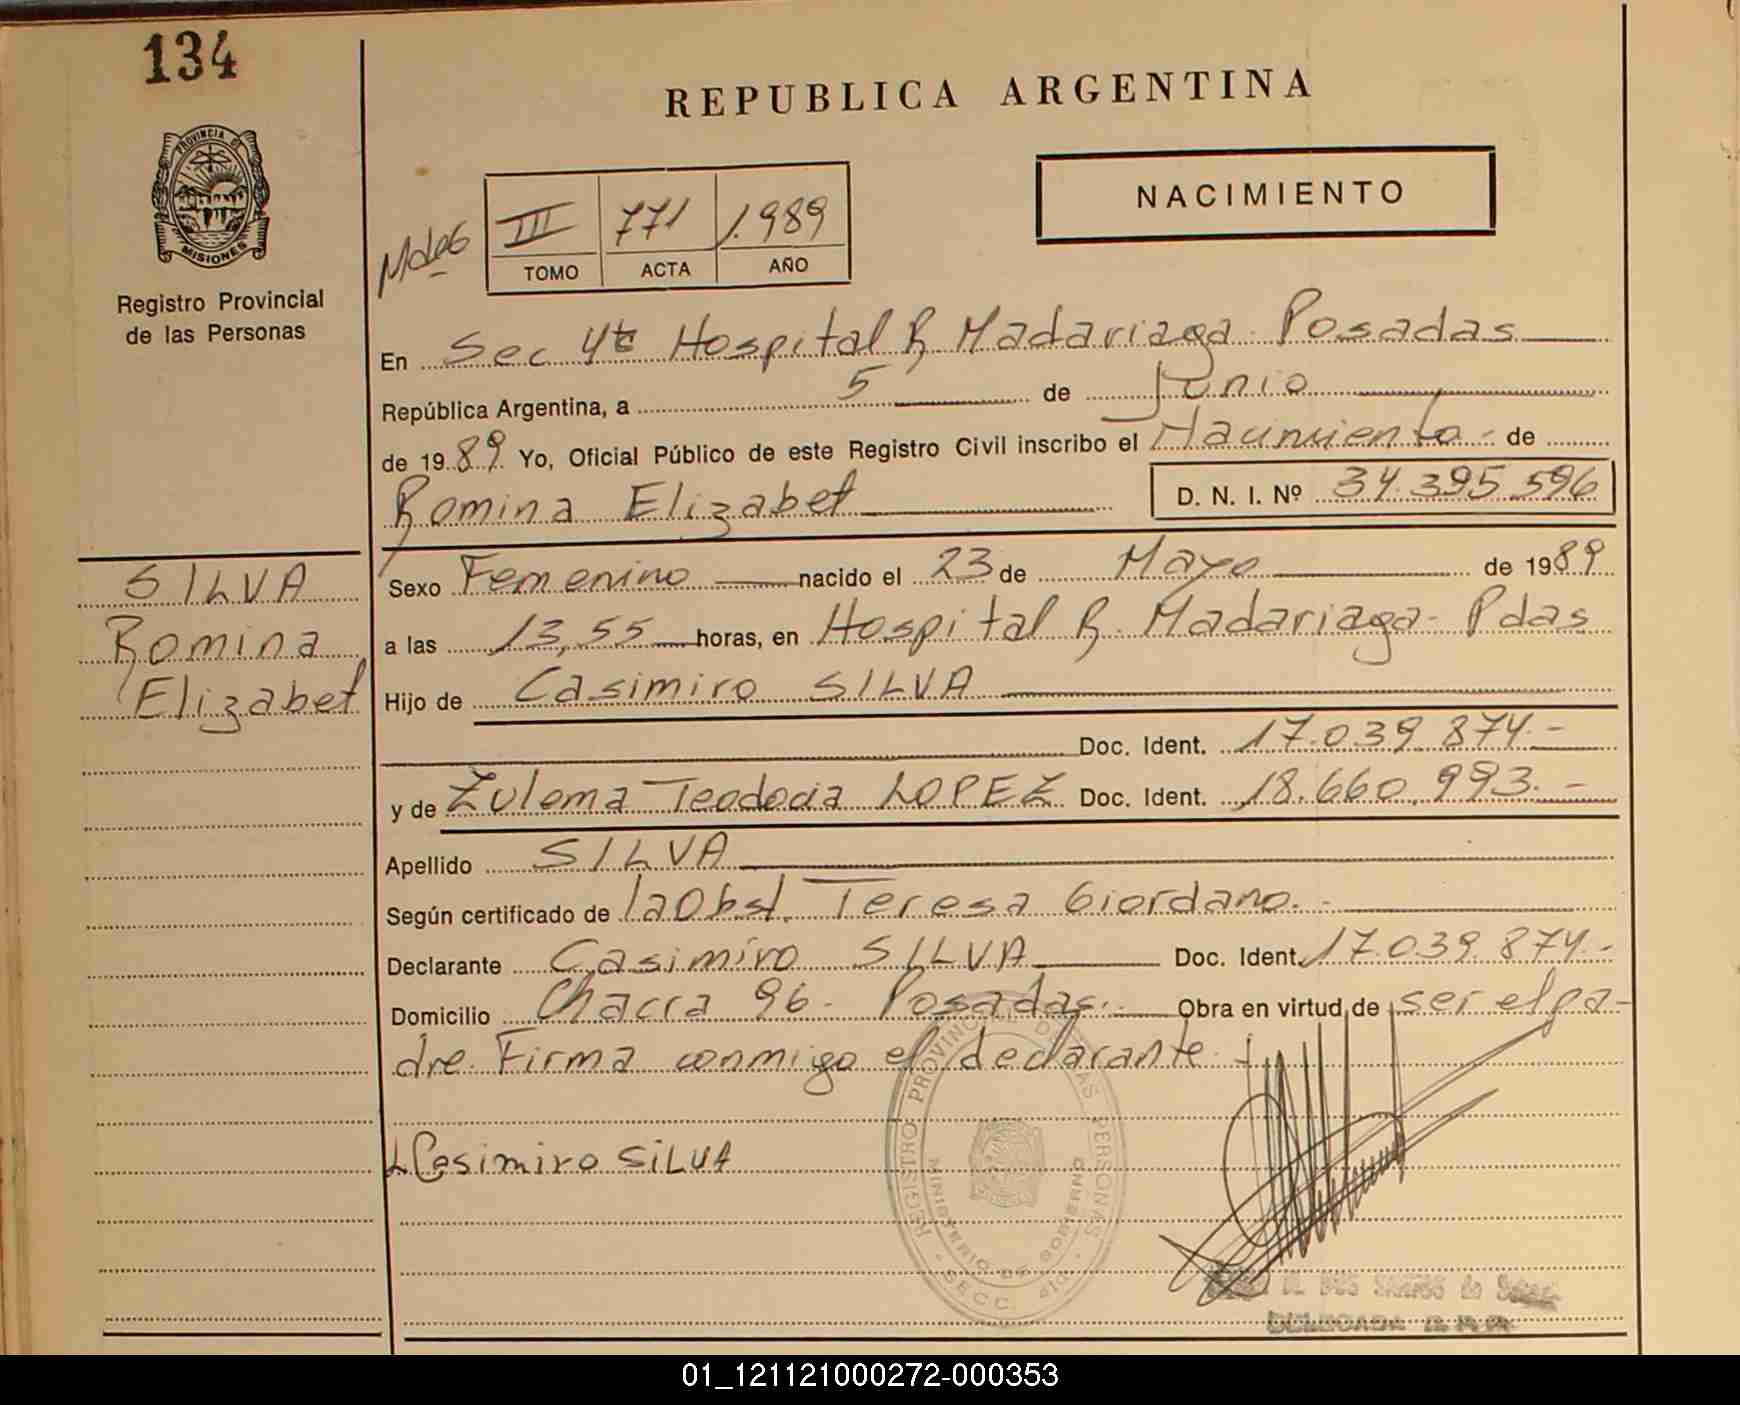 134
REPUBLICA ARGENTINA
PROVINCIA DE
MISIONES
Registro Provincial
de las Personas
NACIMIENTO
III 771 1.989
TOMO ACTA AÑO
En Sec 4ta Hospital R Madariaga - Posadas
República Argentina, a 5 de Junio
de 1989 Yo, Oficial Público de este Registro Civil inscribo el Nacimiento - de
Romina Elizabet D. N. I. Nº 34.395.596
SILVA
Romina
Elizabet
Sexo Femenino nacido el 23 de Mayo de 1989
a las 13,55 horas, en Hospital R. Madariaga - Pdas
Hijo de Casimiro SILVA
Doc. Ident. 17.039.874.-
y de Zulema Teodocia LOPEZ Doc. Ident. 18.660.993.-
Apellido SILVA
Según certificado de la Obst. Teresa Giordano.-
Declarante Casimiro SILVA Doc. Ident. 17.039.874.-
Domicilio Chacra 96 - Posadas.- Obra en virtud de ser el pa-
dre. Firma conmigo el declarante.
Casimiro SiLVA
REGISTRO PROVINCIAL DE LAS PERSONAS
MINISTERIO DE GOBIERNO
SECC. 4ta
DOS SANTOS de
DELEGADA
01_121121000272-000353